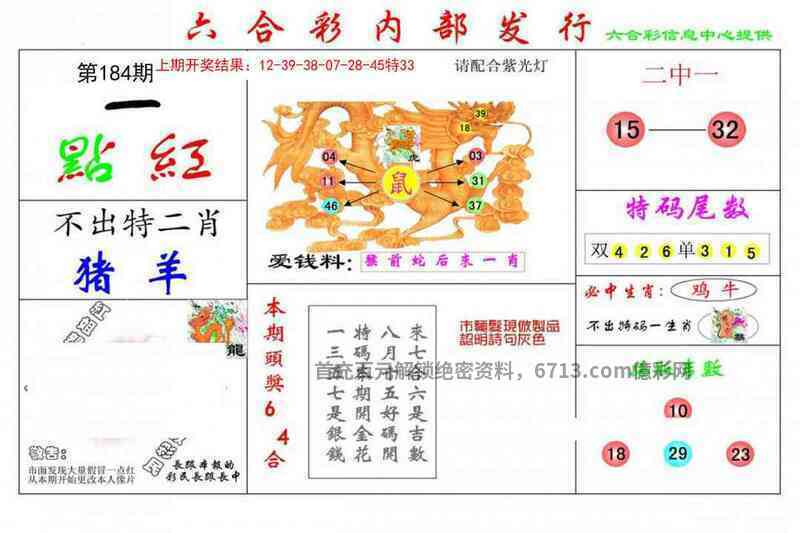 六合彩内部发行
六合彩信息中心提供
第184期
上期开奖结果：12-39-38-07-28-45特33
请配合紫光灯
一
點 紅
不出特二肖
猪 羊
龍
敬告：
市面发现大量假冒一点红
从本期开始更改本人像片
長跟本報的
彩民長跟長中
39
18
虎
04
03
11
鼠
31
46
37
爱钱料：
猴前蛇后来一肖
本期頭獎6 4合
來七合六是吉數
八月十五好碼開
特碼本期開金花
一三五七是銀錢
市面髮現倣製品
認明詩句灰色
二中一
15
32
特码尾数
双 4 2 6 单 3 1 5
必中生肖：
鸡 牛
不出特码一生肖
10
18
29
23
首充百元解锁绝密资料，6713.com億彩网